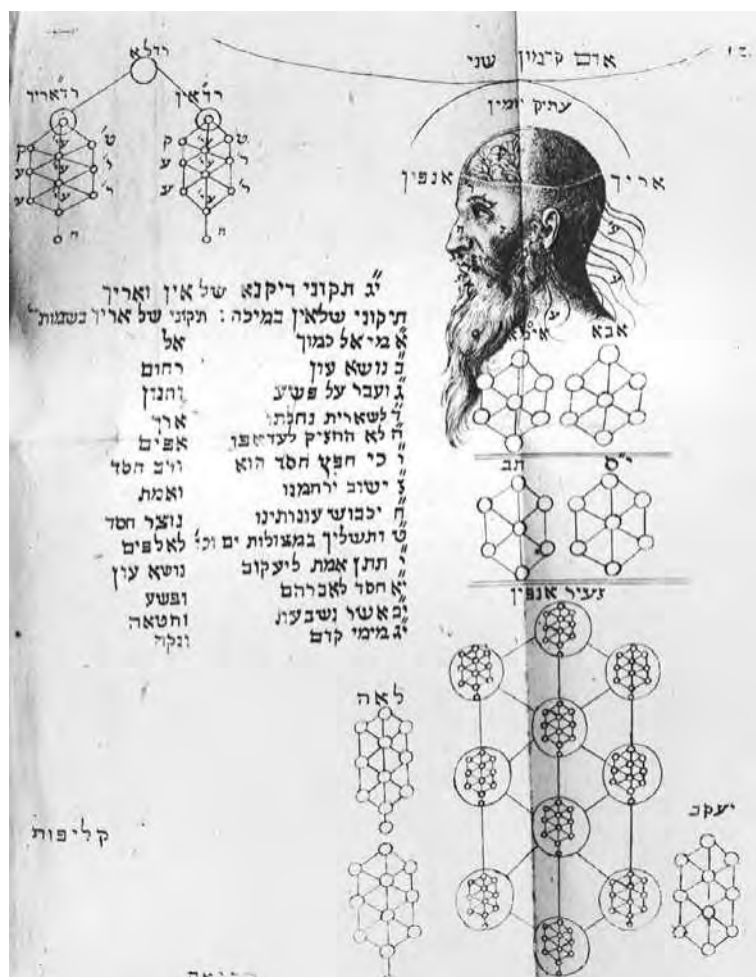 אדם קדמון שני
עתיק יומין
אריך אנפין
רדלא
רדאריך
רדאין
ט
ק
ל
ע
ל
ע
ח
ט
ק
ל
ע
ל
ע
ח
יג תקוני דיקנא של אין ואריך
תיקוני שלאין במיכה : תקוני של אריך בשמות
א מי אל כמוך אל
ב נושא עון רחום
ג ועבר על פשע וחנון
ד לשארית נחלתו ארך
ה לא החזיק לעד אפו אפים
ו כי חפץ חסד הוא ורב חסד
ז ישוב ירחמנו ואמת
ח יכבוש עונותינו נוצר חסד
ט ותשליך במצולות ים וכו' לאלפים
י תתן אמת ליעקוב נושא עון
יא חסד לאברהם ופשע
יב אשר נשבעת וחטאה
יג מימי קדם ונקה
אבא
אימא
י"ס
תב
זעיר אנפין
לאה
יעקב
קליפות